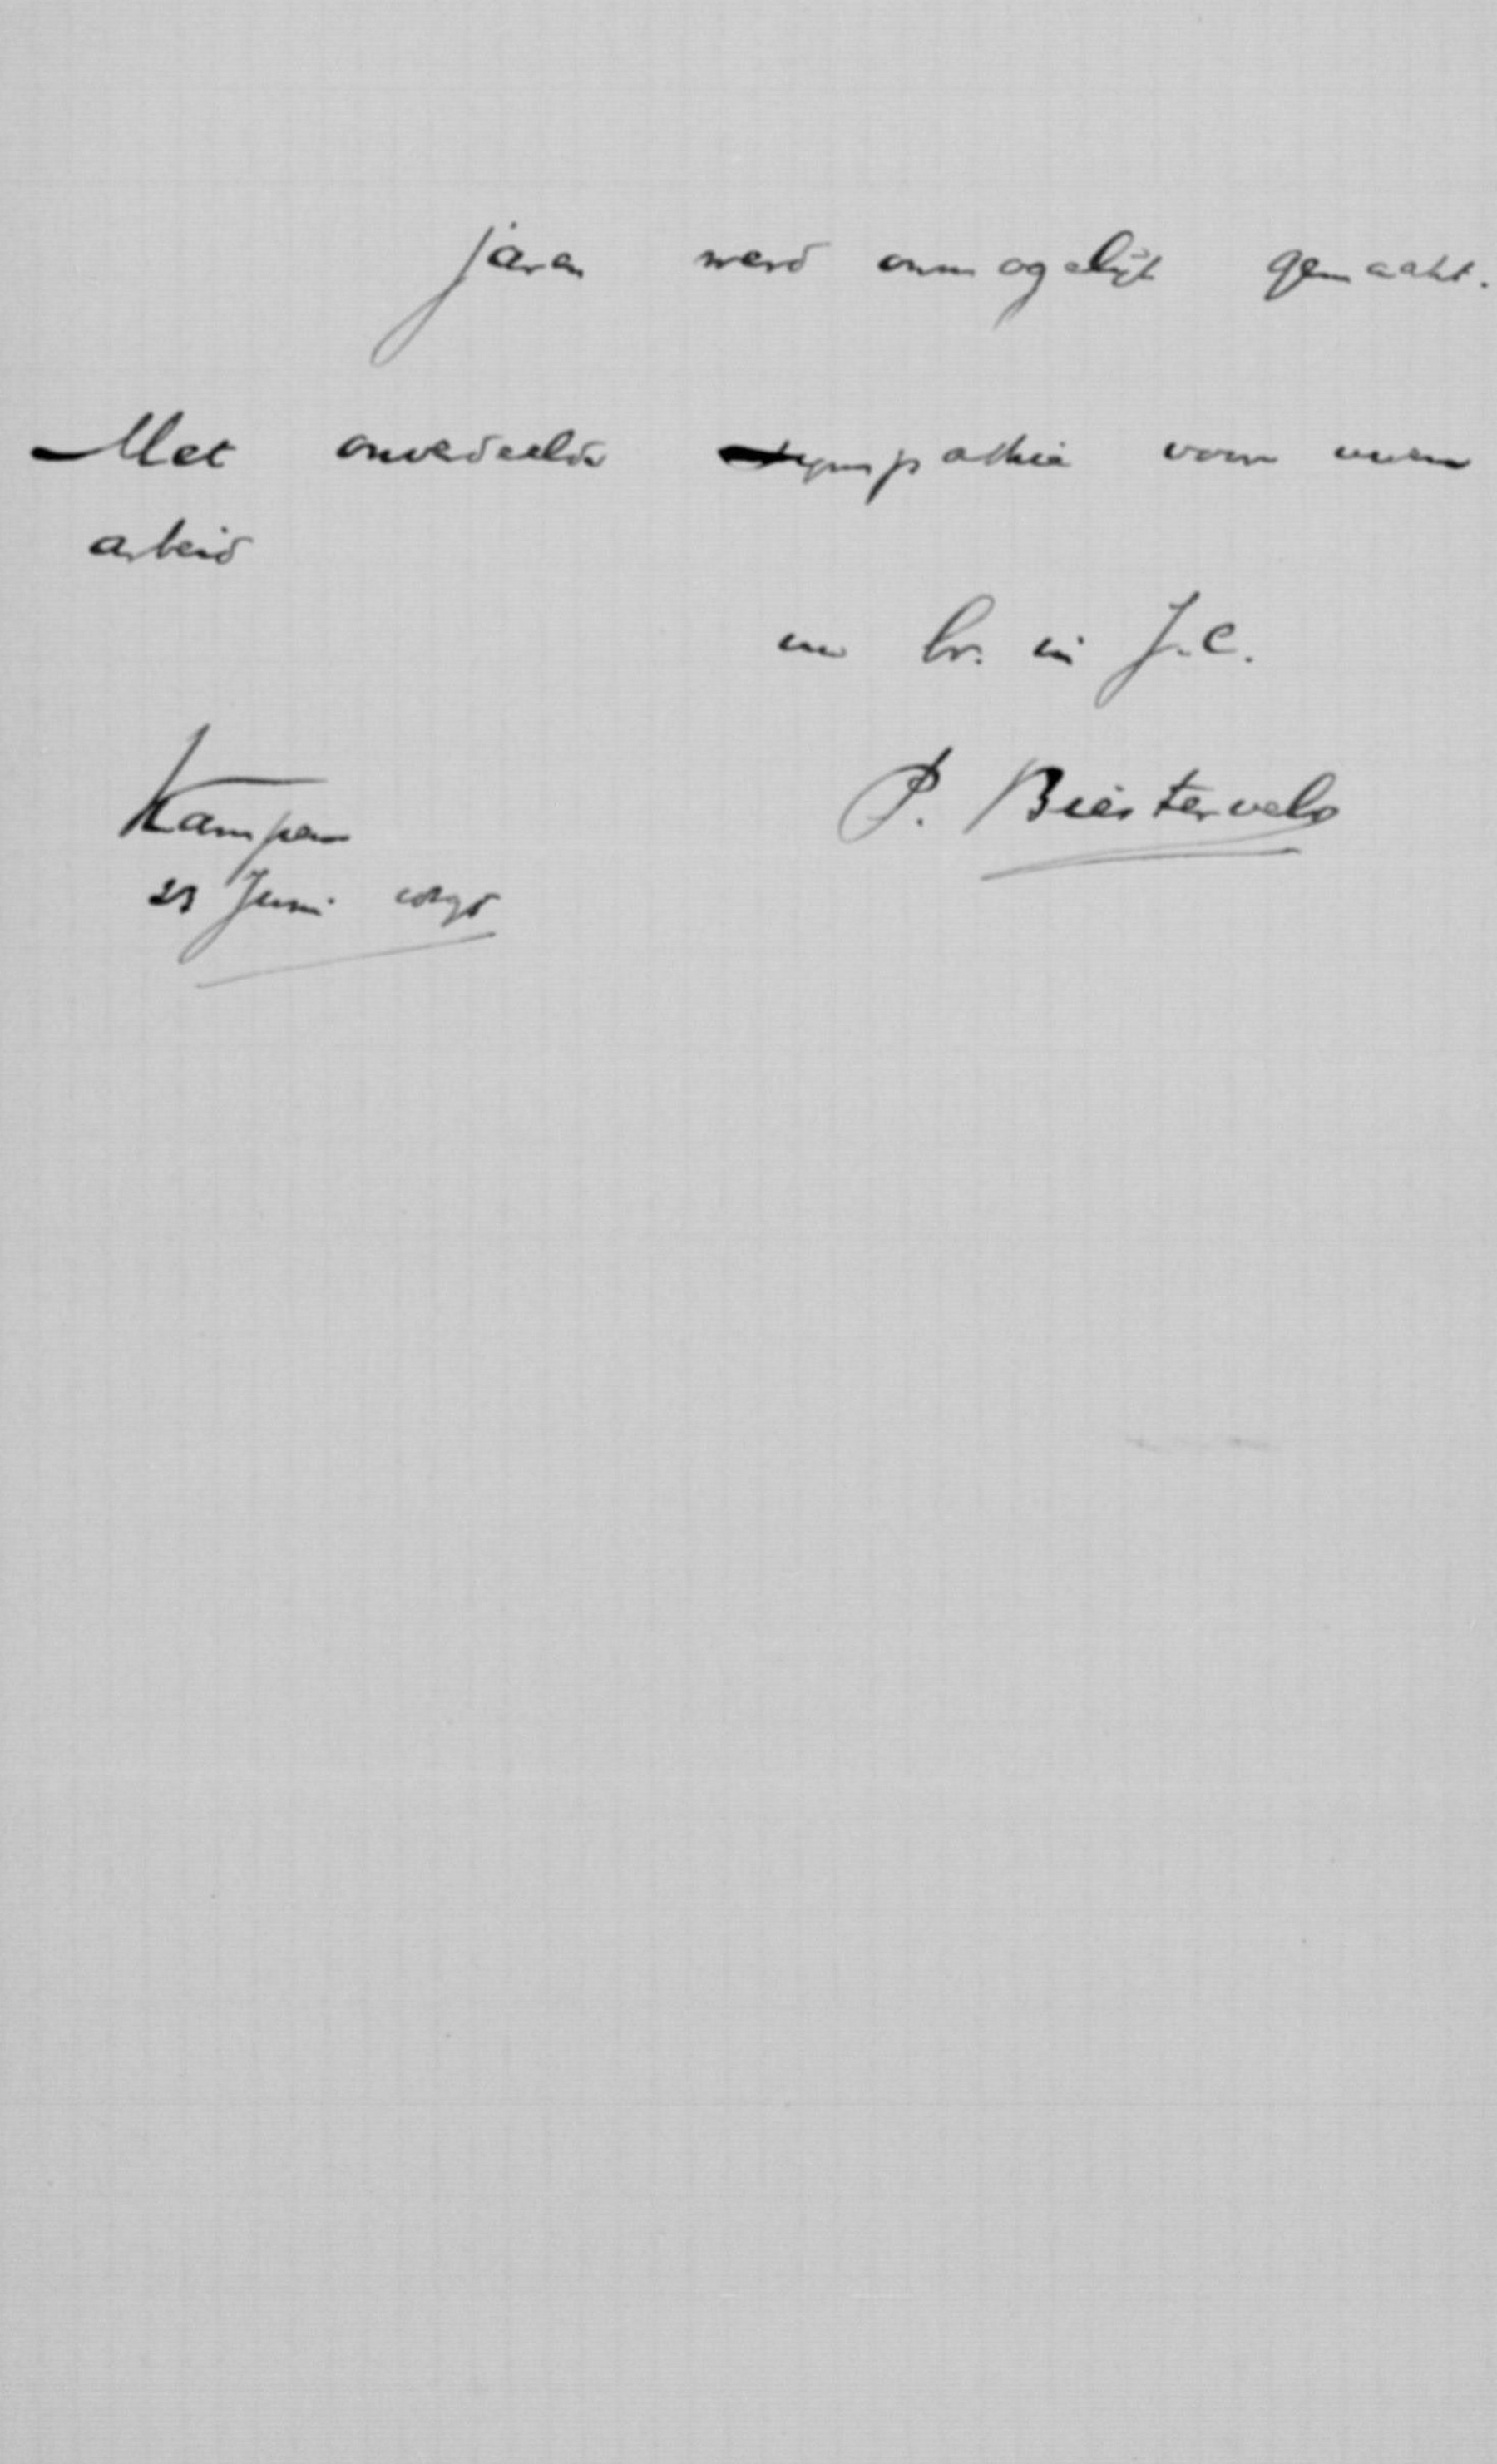 jaren werd onmogelijk gemaakt.
Met onverdeelde sympathie voor uwen
arbeid
uw br. in J.C.
P. Biesterveld
Kampen
23 Juni